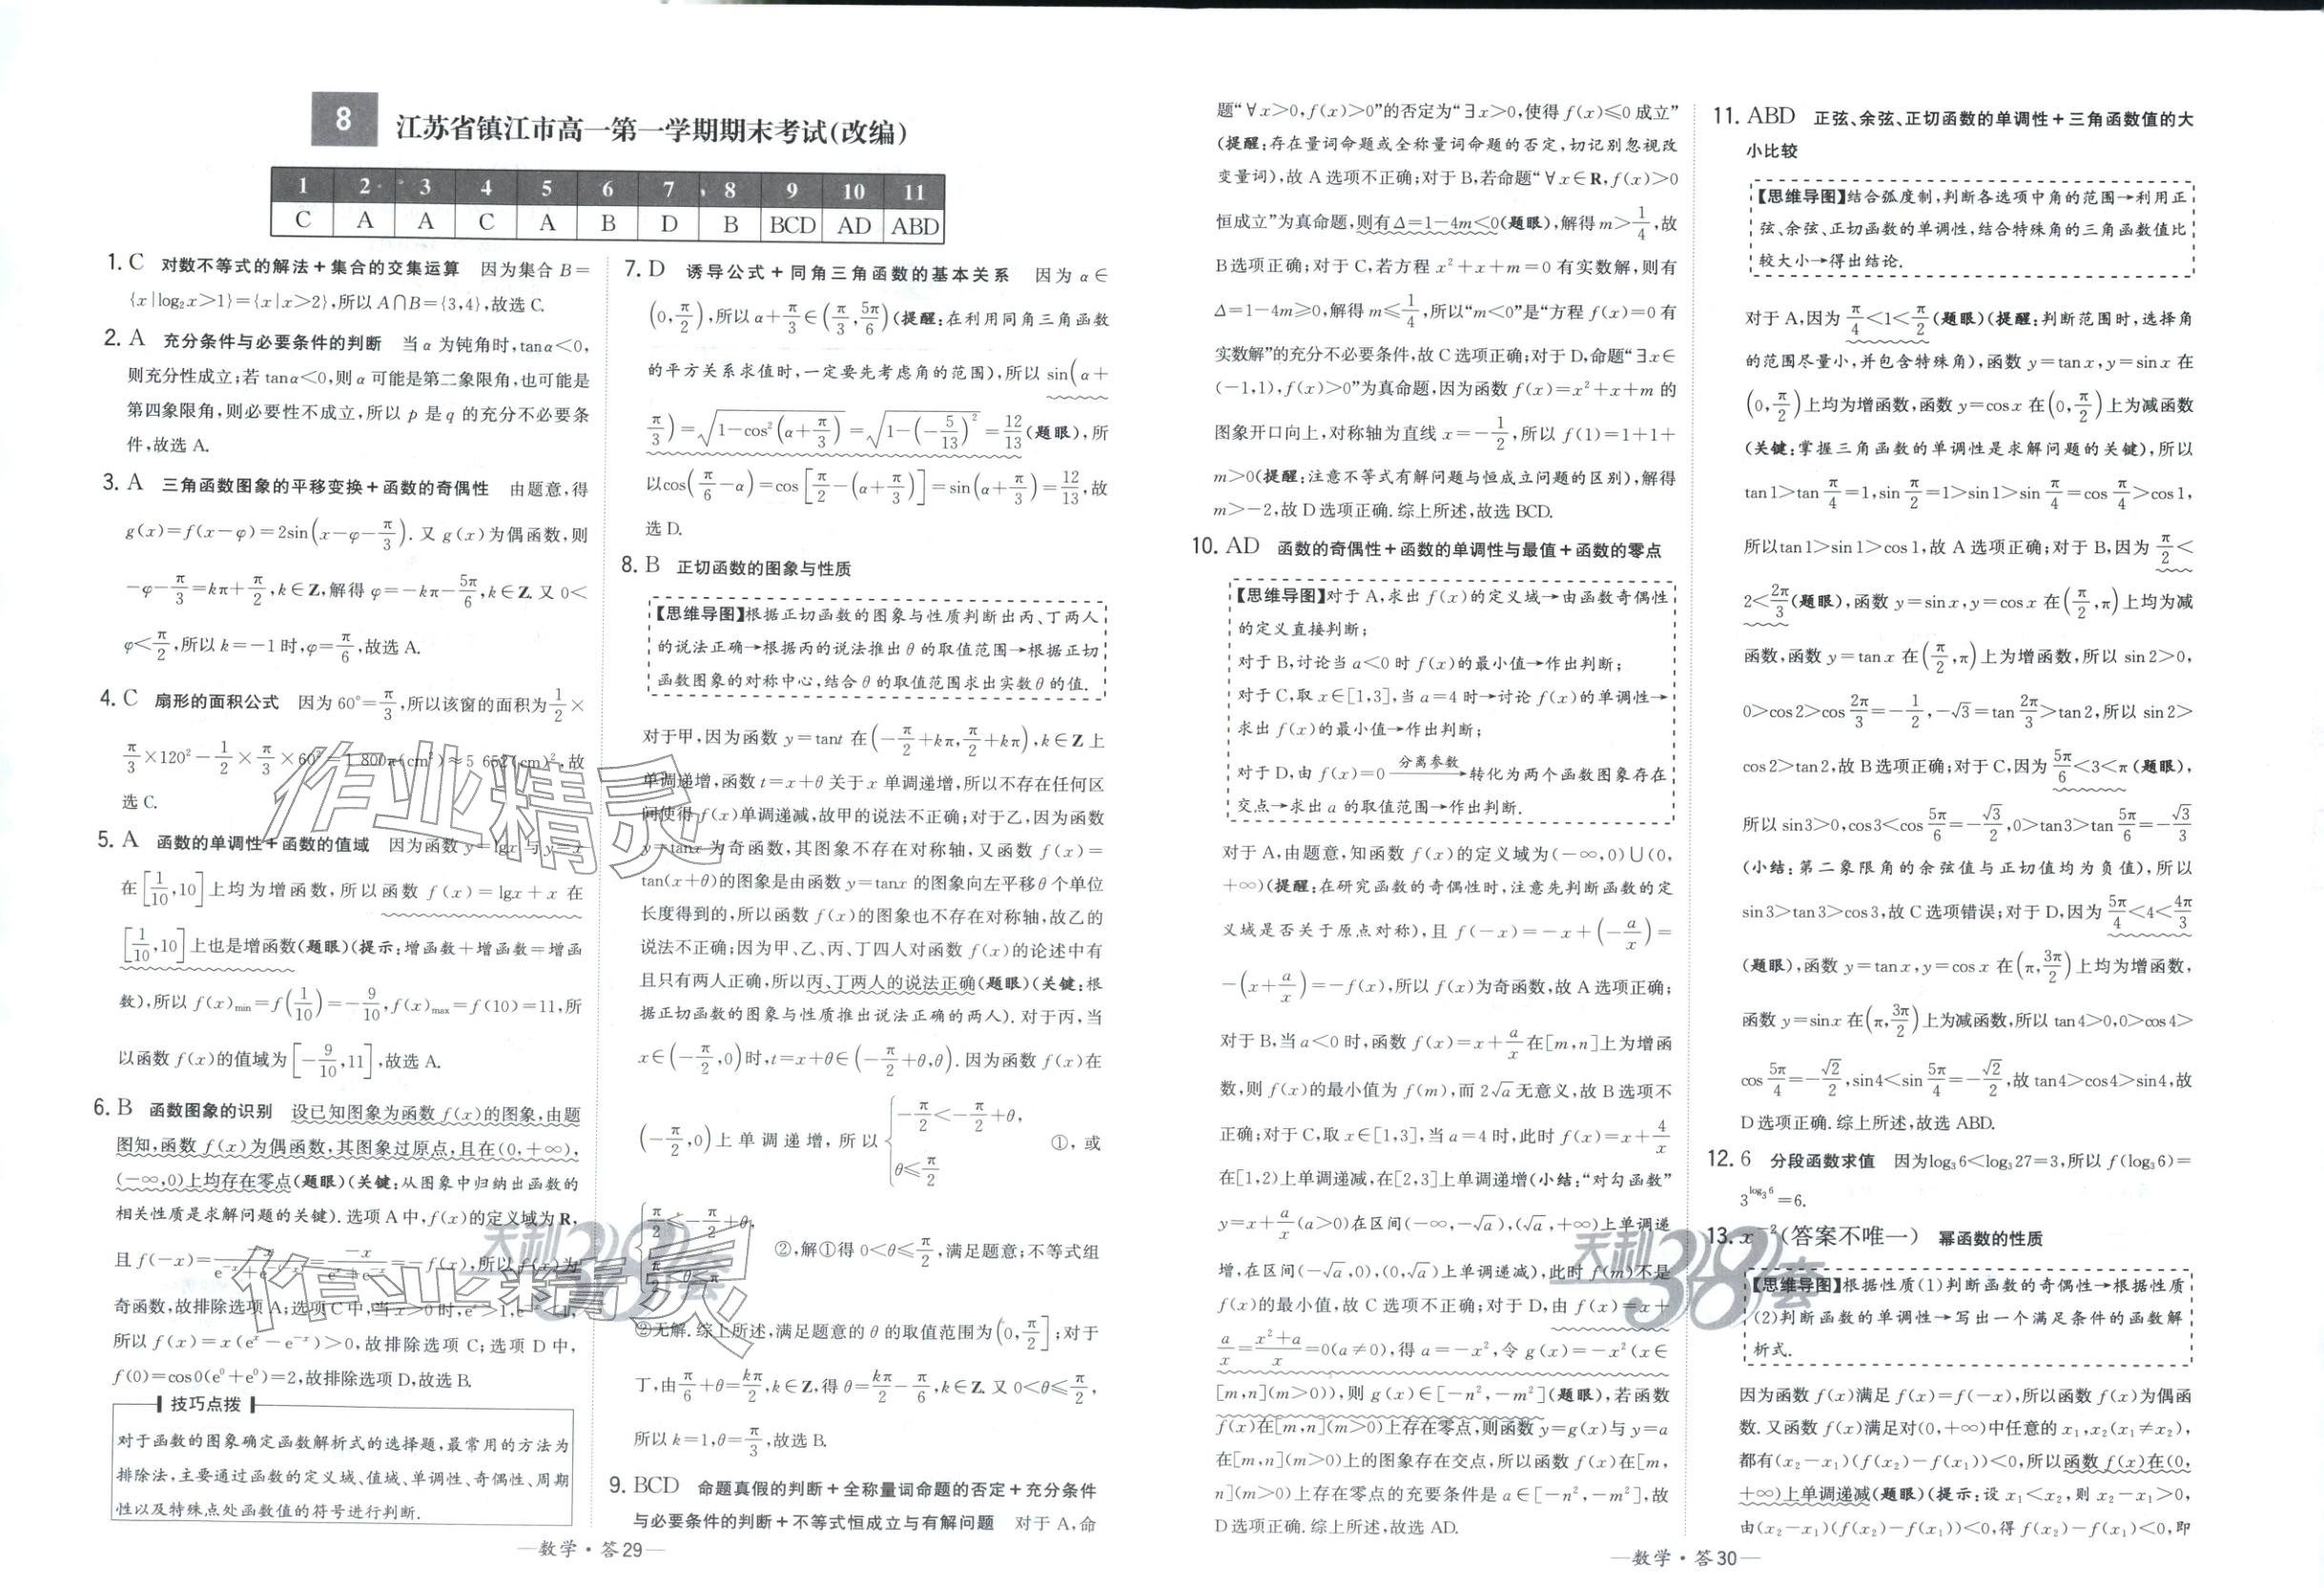 8 江苏省镇江市高一第一学期期末考试(改编)
1 2 3 4 5 6 7 8 9 10 11
C A A C A B D B BCD AD ABD
1. C 对数不等式的解法+集合的交集运算 因为集合 B=
{x|log₂x>1}={x|x>2},所以 A∩B={3,4},故选 C.
2. A 充分条件与必要条件的判断 当 α 为钝角时,tanα<0,
则充分性成立;若 tanα<0,则 α 可能是第二象限角,也可能是
第四象限角,则必要性不成立,所以 p 是 q 的充分不必要条
件,故选 A.
3. A 三角函数图象的平移变换+函数的奇偶性 由题意,得
g(x)=f(x-φ)=2sin(x-φ-π/3). 又 g(x)为偶函数,则
-φ-π/3=kπ+π/2,k∈Z,解得 φ=-kπ-5π/6,k∈Z. 又 0<
φ<π/2,所以 k=-1 时,φ=π/6,故选 A.
4. C 扇形的面积公式 因为 60°=π/3,所以该窗的面积为 1/2×
π/3×120²-1/2×π/3×60²=1 800π(cm²)≈5 652(cm)²,故
选 C.
5. A 函数的单调性+函数的值域 因为函数 y=lgx 与 y=x
在[1/10,10]上均为增函数,所以函数 f(x)=lgx+x 在
[1/10,10]上也是增函数(题眼)(提示:增函数+增函数=增函
数),所以 f(x)min=f(1/10)=-9/10,f(x)max=f(10)=11,所
以函数 f(x)的值域为[-9/10,11],故选 A.
6. B 函数图象的识别 设已知图象为函数 f(x)的图象,由题
图知,函数 f(x)为偶函数,其图象过原点,且在(0,+∞),
(-∞,0)上均存在零点(题眼)(关键:从图象中归纳出函数的
相关性质是求解问题的关键). 选项 A 中,f(x)的定义域为 R,
且 f(-x)=-x/(e⁻ˣ+eˣ)=-x/(eˣ+e⁻ˣ)=-f(x),所以 f(x)为
奇函数,故排除选项 A;选项 C 中,当 x>0 时,eˣ>1,e⁻ˣ<1,
所以 f(x)=x(eˣ-e⁻ˣ)>0,故排除选项 C;选项 D 中,
f(0)=cos0(e⁰+e⁰)=2,故排除选项 D,故选 B.
技巧点拨
对于函数的图象确定函数解析式的选择题,最常用的方法为
排除法,主要通过函数的定义域、值域、单调性、奇偶性、周期
性以及特殊点处函数值的符号进行判断.
7. D 诱导公式+同角三角函数的基本关系 因为 α∈
(0,π/2),所以 α+π/3∈(π/3,5π/6)(提醒:在利用同角三角函数
的平方关系求值时,一定要先考虑角的范围),所以 sin(α+
π/3)=√(1-cos²(α+π/3))=√(1-(-5/13)²)=12/13(题眼),所
以cos(π/6-α)=cos[π/2-(α+π/3)]=sin(α+π/3)=12/13,故
选 D.
8. B 正切函数的图象与性质
【思维导图】根据正切函数的图象与性质判断出丙、丁两人
的说法正确→根据丙的说法推出 θ 的取值范围→根据正切
函数图象的对称中心,结合 θ 的取值范围求出实数 θ 的值.
对于甲,因为函数 y=tant 在(-π/2+kπ,π/2+kπ),k∈Z 上
单调递增,函数 t=x+θ 关于 x 单调递增,所以不存在任何区
间使得 f(x)单调递减,故甲的说法不正确;对于乙,因为函数
y=tanx 为奇函数,其图象不存在对称轴,又函数 f(x)=
tan(x+θ)的图象是由函数 y=tanx 的图象向左平移 θ 个单位
长度得到的,所以函数 f(x)的图象也不存在对称轴,故乙的
说法不正确;因为甲、乙、丙、丁四人对函数 f(x)的论述中有
且只有两人正确,所以丙、丁两人的说法正确(题眼)(关键:根
据正切函数的图象与性质推出说法正确的两人). 对于丙,当
x∈(-π/2,0)时,t=x+θ∈(-π/2+θ,θ). 因为函数 f(x)在
(-π/2,0)上单调递增,所以{-π/2<-π/2+θ, θ≤π/2 ①,或
②,解①得 0<θ≤π/2,满足题意;不等式组
②无解. 综上所述,满足题意的 θ 的取值范围为(0,π/2];对于
丁,由 π/6+θ=kπ/2,k∈Z,得 θ=kπ/2-π/6,k∈Z. 又 0<θ≤π/2,
所以 k=1,θ=π/3,故选 B.
9. BCD 命题真假的判断+全称量词命题的否定+充分条件
与必要条件的判断+不等式恒成立与有解问题 对于 A,命
—数学·答29—
题“∀x>0,f(x)>0”的否定为“∃x>0,使得 f(x)≤0 成立”
(提醒:存在量词命题或全称量词命题的否定,切记别忽视改
变量词),故 A 选项不正确;对于 B,若命题“∀x∈R,f(x)>0
恒成立”为真命题,则有 Δ=1-4m<0(题眼),解得 m>1/4,故
B 选项正确;对于 C,若方程 x²+x+m=0 有实数解,则有
Δ=1-4m≥0,解得 m≤1/4,所以“m<0”是“方程 f(x)=0 有
实数解”的充分不必要条件,故 C 选项正确;对于 D,命题“∃x∈
(-1,1),f(x)>0”为真命题,因为函数 f(x)=x²+x+m 的
图象开口向上,对称轴为直线 x=-1/2,所以 f(1)=1+1+
m>0(提醒:注意不等式有解问题与恒成立问题的区别),解得
m>-2,故 D 选项正确. 综上所述,故选 BCD.
10. AD 函数的奇偶性+函数的单调性与最值+函数的零点
【思维导图】对于 A,求出 f(x)的定义域→由函数奇偶性
的定义直接判断;
对于 B,讨论当 a<0 时 f(x)的最小值→作出判断;
对于 C,取 x∈[1,3],当 a=4 时→讨论 f(x)的单调性→
求出 f(x)的最小值→作出判断;
对于 D,由 f(x)=0 分离参数→转化为两个函数图象存在
交点→求出 a 的取值范围→作出判断.
对于 A,由题意,知函数 f(x)的定义域为(-∞,0)∪(0,
+∞)(提醒:在研究函数的奇偶性时,注意先判断函数的定
义域是否关于原点对称),且 f(-x)=-x+(-a/x)=
-(x+a/x)=-f(x),所以 f(x)为奇函数,故 A 选项正确;
对于 B,当 a<0 时,函数 f(x)=x+a/x 在[m,n]上为增函
数,则 f(x)的最小值为 f(m),而 2√a 无意义,故 B 选项不
正确;对于 C,取 x∈[1,3],当 a=4 时,此时 f(x)=x+4/x
在[1,2)上单调递减,在[2,3]上单调递增(小结:“对勾函数”
y=x+a/x(a>0)在区间(-∞,-√a),(√a,+∞)上单调递
增,在区间(-√a,0),(0,√a)上单调递减),此时 f(m)不是
f(x)的最小值,故 C 选项不正确;对于 D,由 f(x)=x+
a/x=(x²+a)/x=0(a≠0),得 a=-x²,令 g(x)=-x²(x∈
[m,n](m>0)),则 g(x)∈[-n²,-m²](题眼),若函数
f(x)在[m,n](m>0)上存在零点,则函数 y=g(x)与 y=a
在[m,n](m>0)上的图象存在交点,所以函数 f(x)在[m,
n](m>0)上存在零点的充要条件是 a∈[-n²,-m²],故
D 选项正确. 综上所述,故选 AD.
11. ABD 正弦、余弦、正切函数的单调性+三角函数值的大
小比较
【思维导图】结合弧度制,判断各选项中角的范围→利用正
弦、余弦、正切函数的单调性,结合特殊角的三角函数值比
较大小→得出结论.
对于 A,因为 π/4<1<π/2(题眼)(提醒:判断范围时,选择角
的范围尽量小,并包含特殊角),函数 y=tanx,y=sinx 在
(0,π/2)上均为增函数,函数 y=cosx 在(0,π/2)上为减函数
(关键:掌握三角函数的单调性是求解问题的关键),所以
tan1>tanπ/4=1,sinπ/2=1>sin1>sinπ/4=cosπ/4>cos1,
所以tan1>sin1>cos1,故 A 选项正确;对于 B,因为 π/2<
2<2π/3(题眼),函数 y=sinx,y=cosx 在(π/2,π)上均为减
函数,函数 y=tanx 在(π/2,π)上为增函数,所以 sin2>0,
0>cos2>cos2π/3=-1/2,-√3=tan2π/3>tan2,所以 sin2>
cos2>tan2,故 B 选项正确;对于 C,因为 5π/6<3<π(题眼),
所以 sin3>0,cos3<cos5π/6=-√3/2,0>tan3>tan5π/6=-√3/3
(小结:第二象限角的余弦值与正切值均为负值),所以
sin3>tan3>cos3,故 C 选项错误;对于 D,因为 5π/4<4<4π/3
(题眼),函数 y=tanx,y=cosx 在(π,3π/2)上均为增函数,
函数 y=sinx 在(π,3π/2)上为减函数,所以 tan4>0,0>cos4>
cos5π/4=-√2/2,sin4<sin5π/4=-√2/2,故 tan4>cos4>sin4,故
D 选项正确. 综上所述,故选 ABD.
12. 6 分段函数求值 因为log₃6<log₃27=3,所以 f(log₃6)=
3^log₃6=6.
13. x⁻²(答案不唯一) 幂函数的性质
【思维导图】根据性质(1)判断函数的奇偶性→根据性质
(2)判断函数的单调性→写出一个满足条件的函数解
析式.
因为函数 f(x)满足 f(x)=f(-x),所以函数 f(x)为偶函
数. 又函数 f(x)满足对(0,+∞)中任意的 x₁,x₂(x₁≠x₂),
都有(x₂-x₁)(f(x₂)-f(x₁))<0,所以函数 f(x)在(0,
+∞)上单调递减(题眼)(提示:设 x₁<x₂,则 x₂-x₁>0,
由(x₂-x₁)(f(x₂)-f(x₁))<0,得 f(x₂)-f(x₁)<0,即
—数学·答30—
作业精灵
作业精灵
天利38套
天利38套